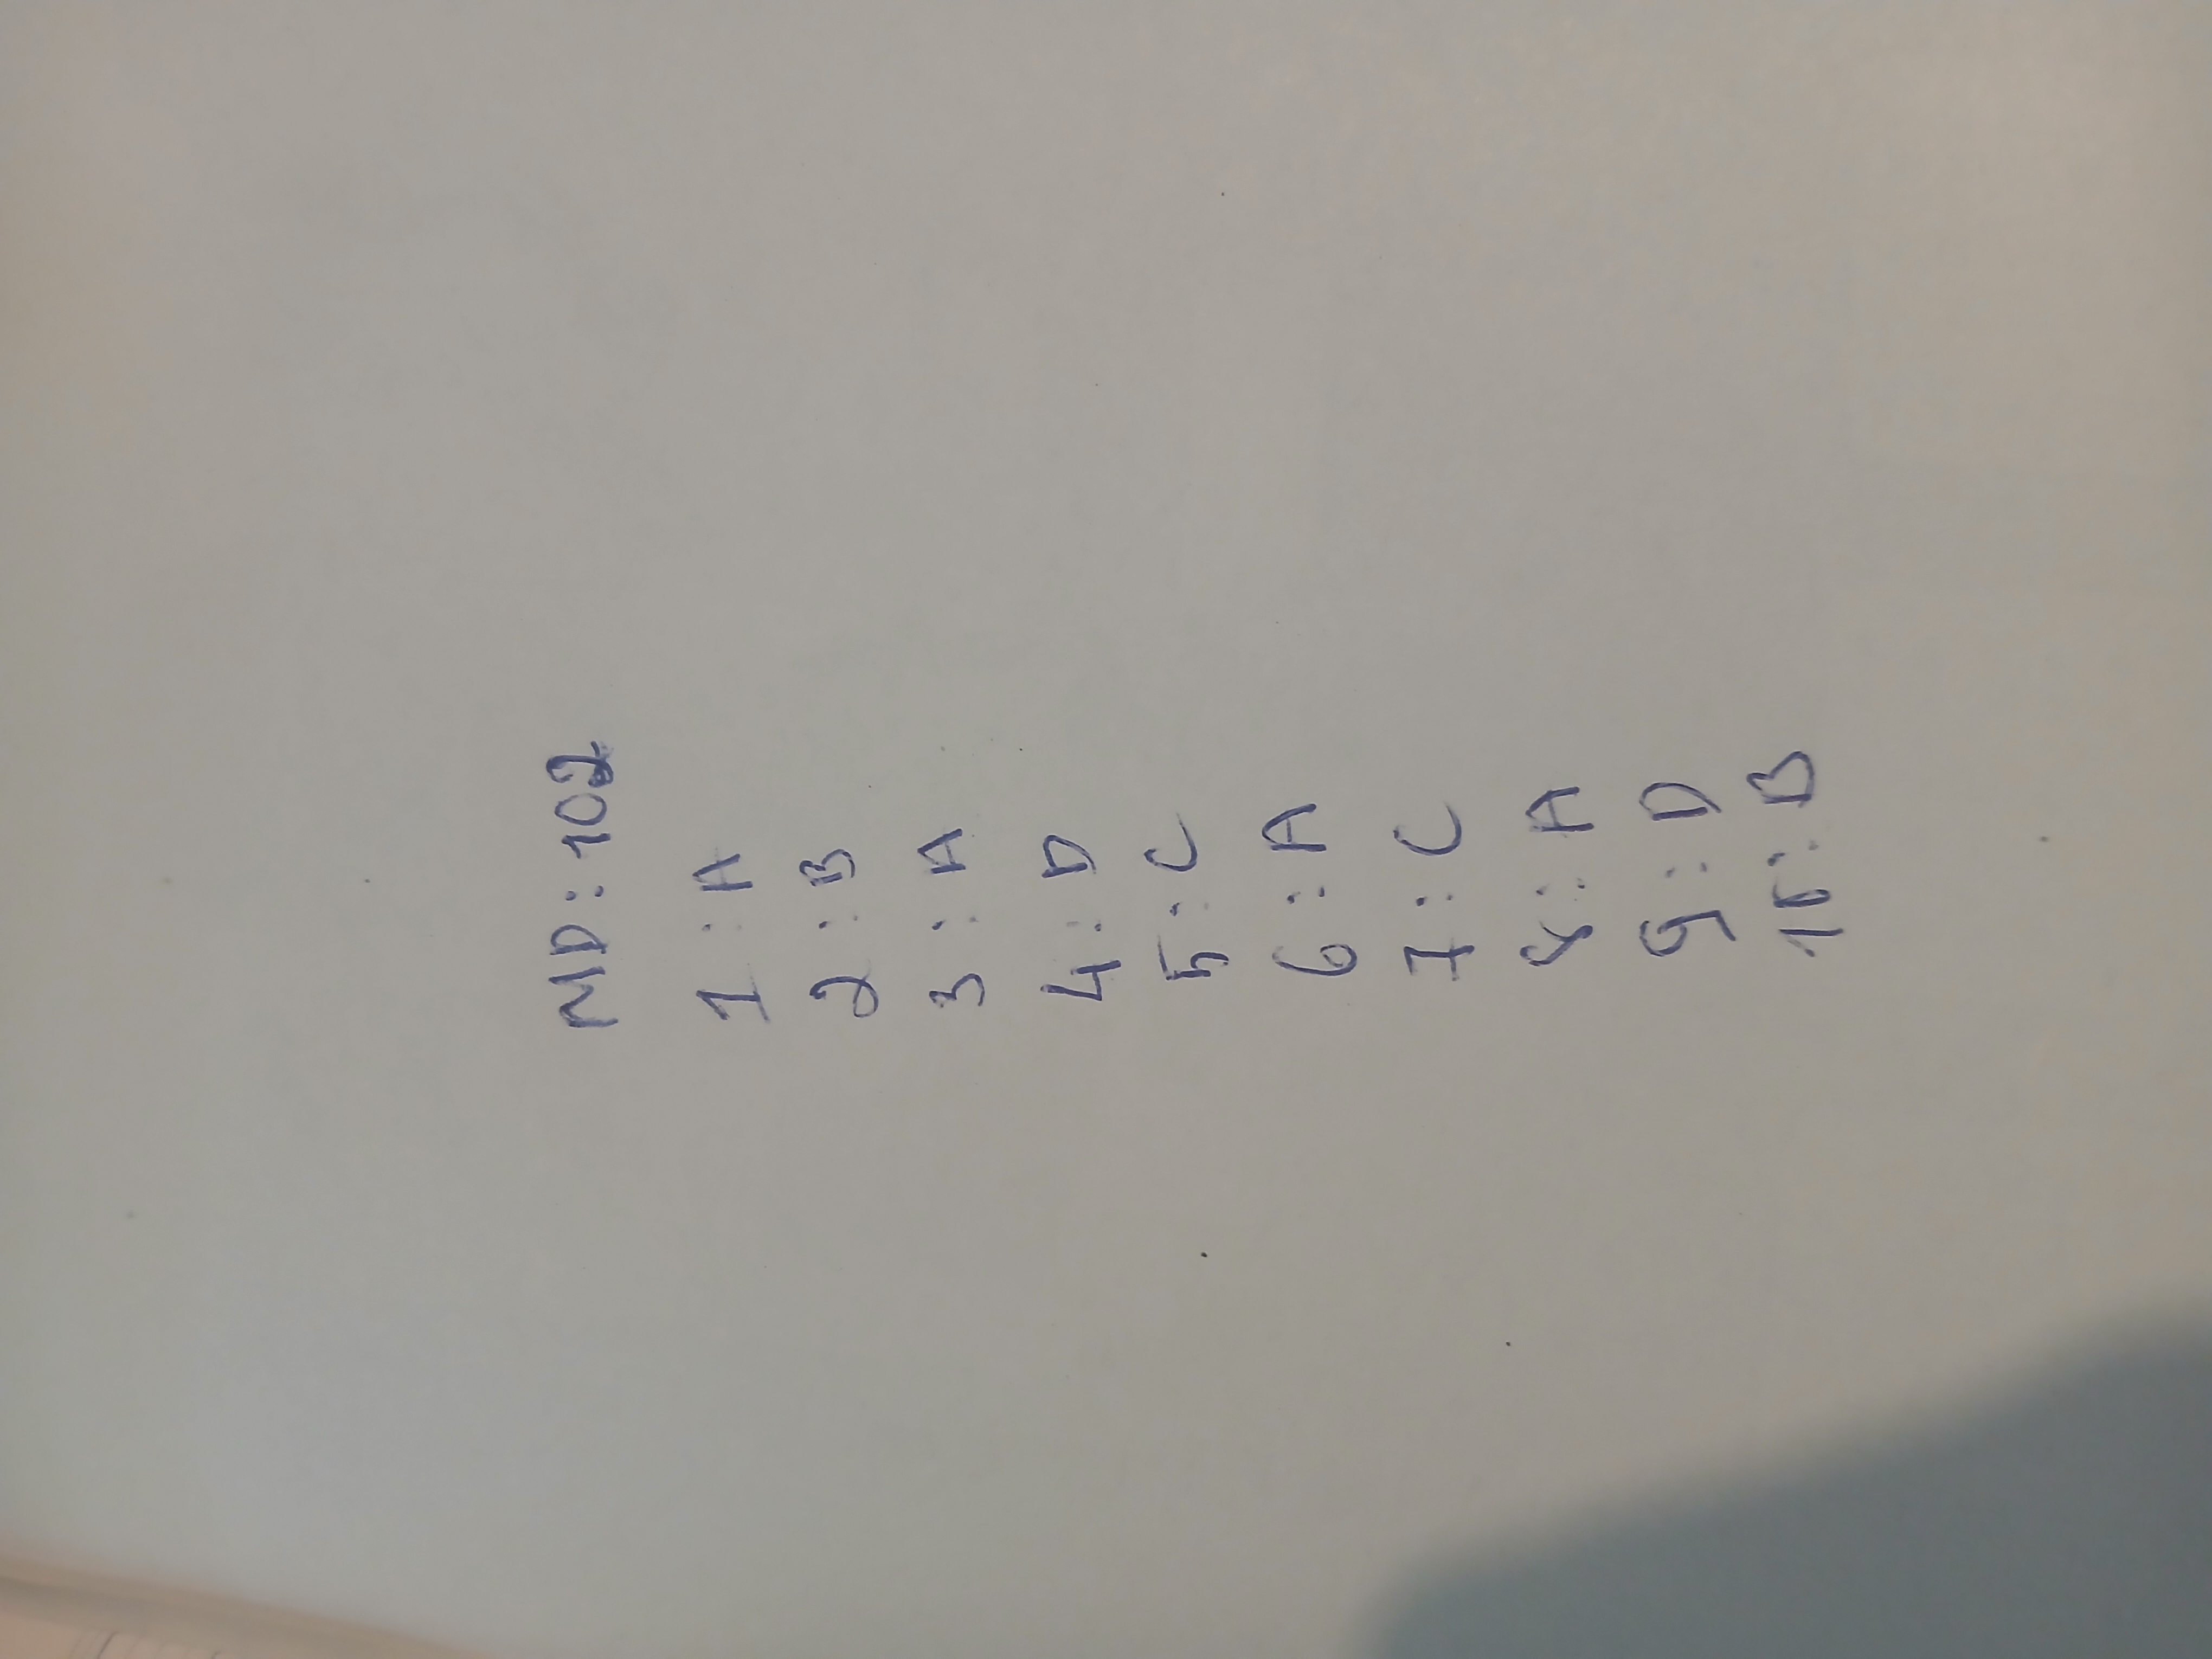 MD: 102
1 : A
2 : B
3 : A
4 : D
5 : C
6 : A
7 : C
8 : A
9 : D
10 : B